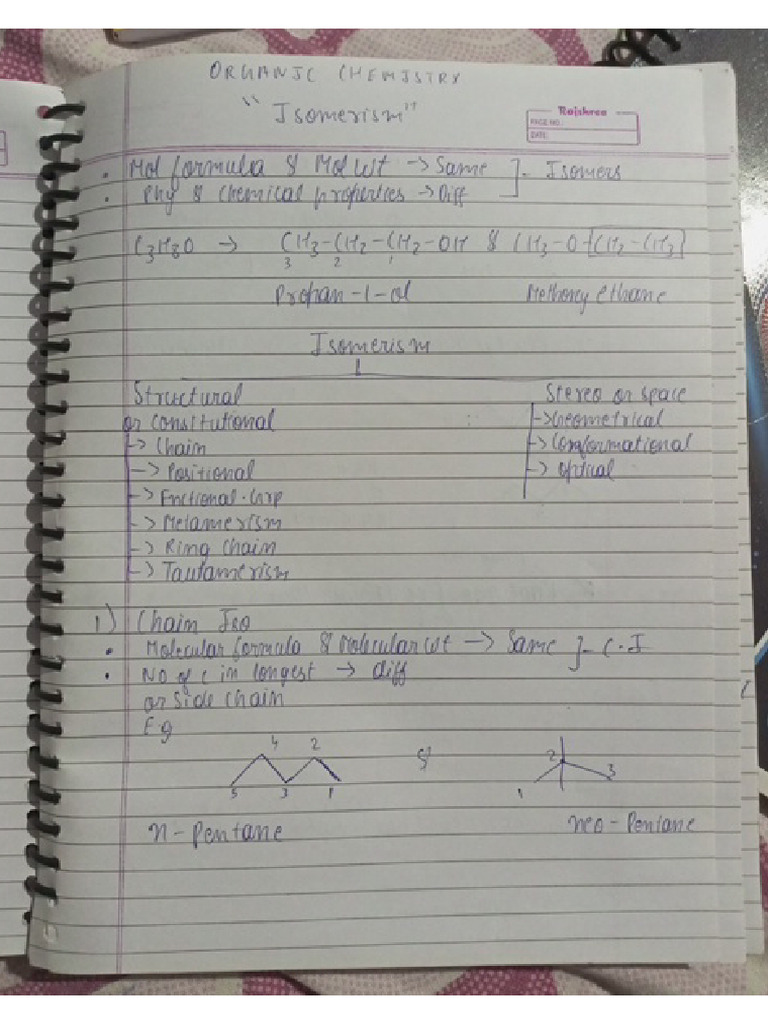 ORGANIC CHEMISTRY
"Isomerism"
Rajshree
PAGE NO.:
DATE:
• Mol formula & Mol Wt → Same ]- Isomers
• Phy & Chemical properties → Diff
C3H8O → CH3-CH2-CH2-OH & CH3-O-[CH2-CH3]
3 2 1
Propan-1-ol Methoxy ethane
Isomerism
Structural Stereo or space
or Consitutional → Geometrical
→ Chain → Conformational
→ Positional → Optical
→ Fnctional. Grp
→ Metamerism
→ Ring Chain
→ Tautamerism
1) Chain Iso
• Molecular formula & Molecular Wt → Same ]- C.I
• No of C in longest → diff
or Side chain
E.g
4 2 & 2 3
5 3 1 1
n-Pentane neo-Pentane